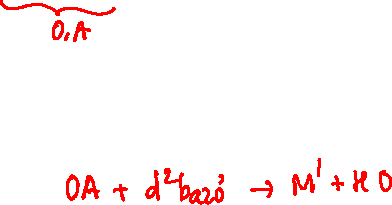 O,A
OA + d²bazơ → M' + H O